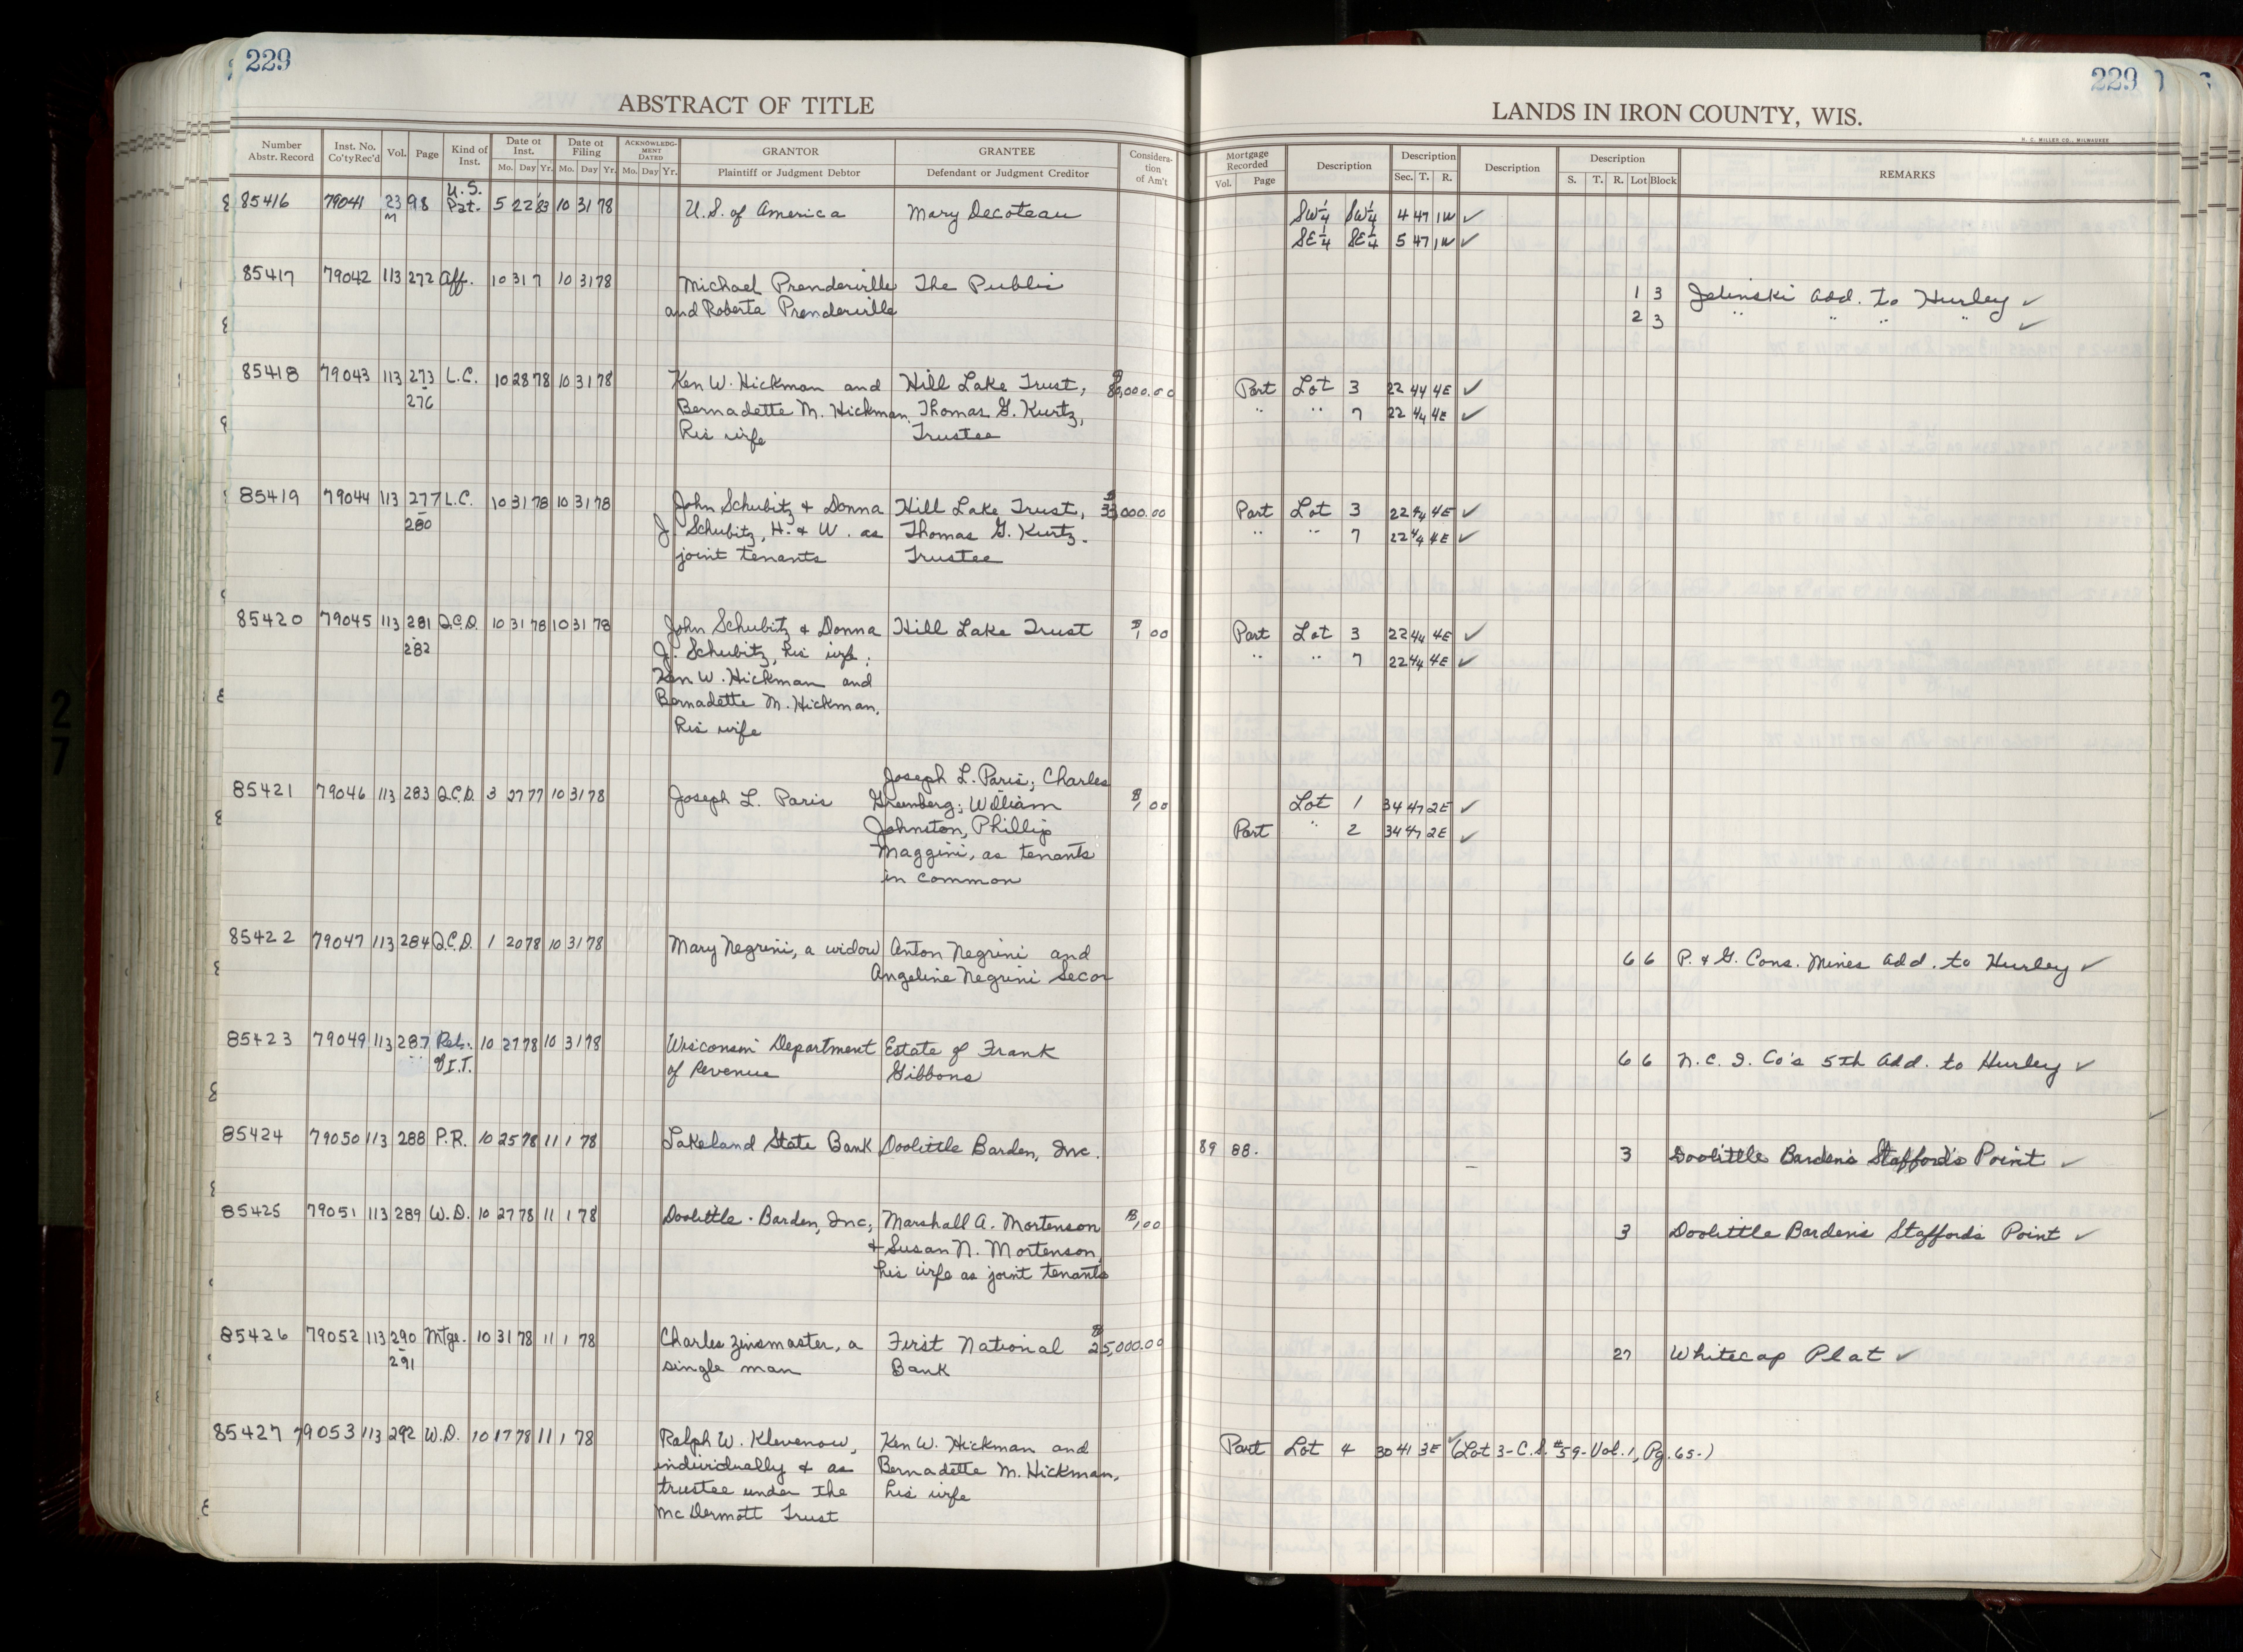 229
229
ABSTRACT OF TITLE
LANDS IN IRON COUNTY, WIS.
H. C. MILLER CO., MILWAUKEE
Number Abstr. Record Inst. No. Co'ty Rec'd Vol. Page Kind of Inst. Date of Inst. Mo. Day Yr. Date of Filing Mo. Day Yr. ACKNOWLEDGMENT DATED Mo. Day Yr. GRANTOR Plaintiff or Judgment Debtor GRANTEE Defendant or Judgment Creditor Consideration of Am't
Mortgage Recorded Vol. Page Description Description Sec. T. R. Description Description S. T. R. Lot Block REMARKS
85416 79041 23 98 U.S. Pat. 5 22 83 10 31 78 U.S. of America Mary Decoteau SW¼ SW¼ 4 47 1W ✓
M SE¼ SE¼ 5 47 1W ✓
85417 79042 113 272 Aff. 10 31 7 10 31 78 Michael Prenderville The Public 1 3 Jelinski Add. to Hurley ✓
and Roberta Prenderville 2 3 " " " " ✓
85418 79043 113 273 L.C. 10 28 78 10 31 78 Ken W. Hickman and Hill Lake Trust, Part Lot 3 22 44 4E ✓
- 276 Bernadette M. Hickman, Thomas G. Kurtz, " " 7 22 44 4E ✓
his wife Trustee
85419 79044 113 277 L.C. 10 31 78 10 31 78 John Schubitz & Donna Hill Lake Trust, Part Lot 3 22 44 4E ✓
- 280 J. Schubitz, H. & W. as Thomas G. Kurtz. " " 7 22 44 4E ✓
joint tenants Trustee
85420 79045 113 281 Q.C.D. 10 31 78 10 31 78 John Schubitz & Donna Hill Lake Trust $1.00 Part Lot 3 22 44 4E ✓
- 282 J. Schubitz, his wife; " " 7 22 44 4E ✓
Ken W. Hickman and
Bernadette M. Hickman,
his wife
Joseph L. Paris; Charles
85421 79046 113 283 Q.C.D. 3 27 77 10 31 78 Joseph L. Paris Greenberg; William $1.00 Lot 1 34 47 2E ✓
Johnston, Phillip Part " 2 34 47 2E ✓
Maggini, as tenants
in common
85422 79047 113 284 Q.C.D. 1 20 78 10 31 78 Mary Negrini, a widow Anton Negrini and 6 6 P. & G. Cons. Mines Add. to Hurley ✓
Angeline Negrini Secor
85423 79049 113 287 Rel. 10 27 78 10 31 78 Wisconsin Department Estate of Frank 6 6 N. C. I. Co's 5th Add. to Hurley ✓
of I.T. of Revenue Gibbons
85424 79050 113 288 P.R. 10 25 78 11 1 78 Lakeland State Bank Doolittle Barden, Inc. 89 88. 3 Doolittle Barden's Stafford's Point ✓
85425 79051 113 289 W.D. 10 27 78 11 1 78 Doolittle-Barden, Inc, Marshall A. Mortenson $1.00 3 Doolittle Barden's Stafford's Point ✓
& Susan N. Mortenson,
his wife as joint tenants
85426 79052 113 290 Mtge. 10 31 78 11 1 78 Charles Zinsmaster, a First National $25,000.00 27 Whitecap Plat ✓
- 291 single man Bank
85427 79053 113 292 W.D. 10 17 78 11 1 78 Ralph W. Klevenow, Ken W. Hickman and Part Lot 4 30 41 3E ✓ (Lot 3-C.S. #59-Vol. 1, Pg. 65-)
individually & as Bernadette M. Hickman,
trustee under the his wife
McDermott Trust